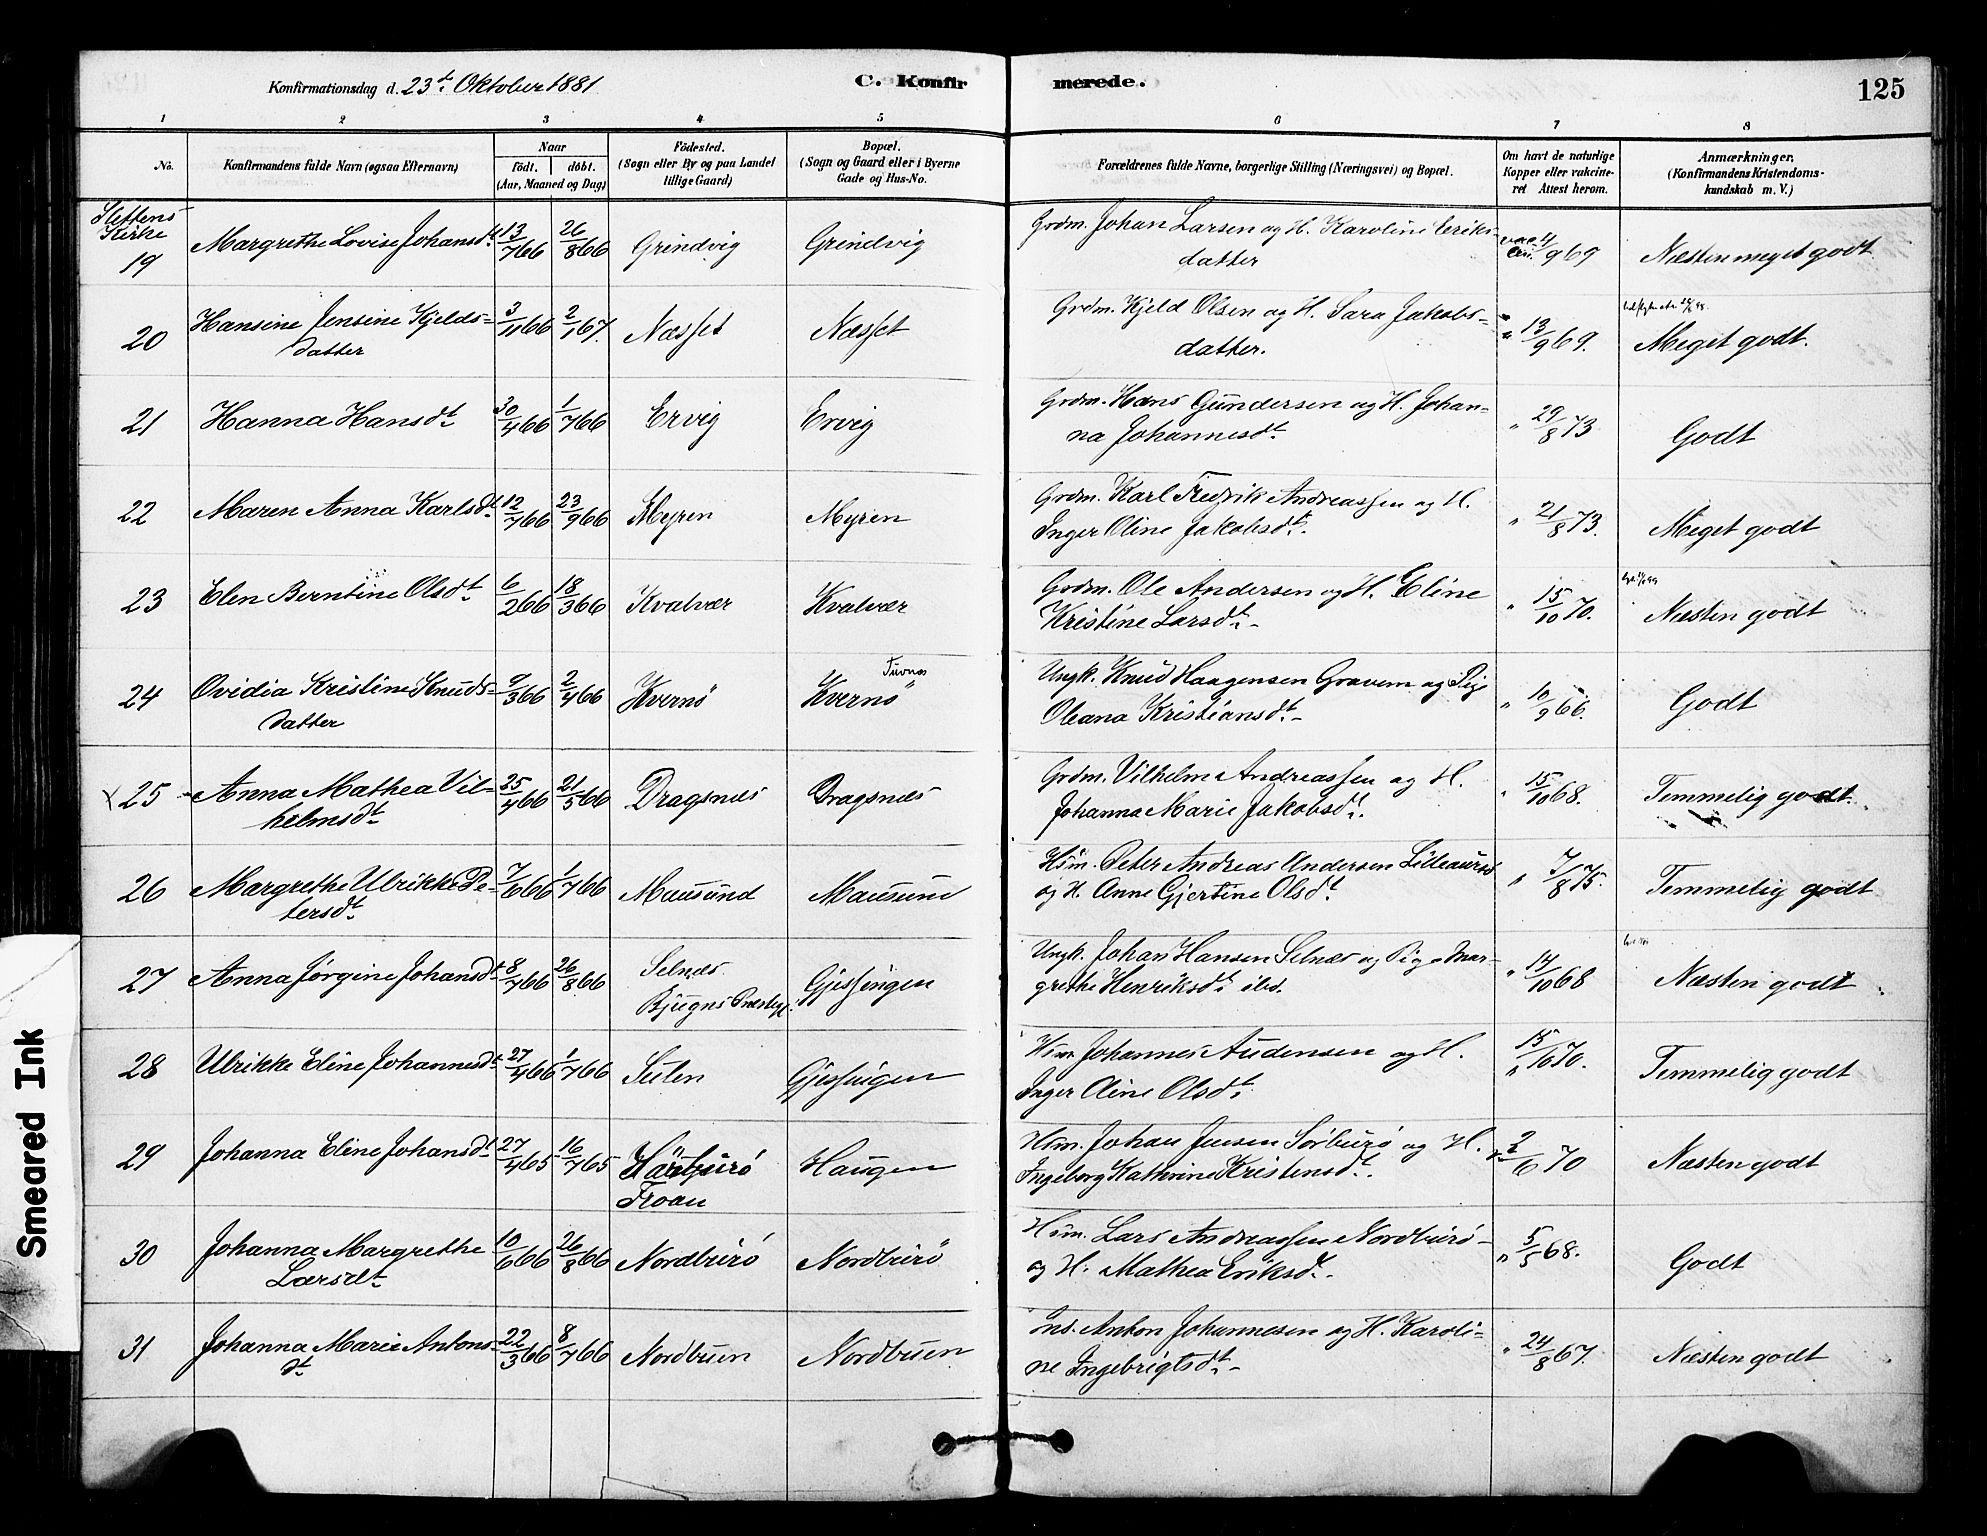 Konfirmationsdag d. 23de Oktober 1881
C. Konfirmerede.
125
1 2 3 4 5 6 7 8
No.
Konfirmandens fulde Navn (ogsaa Efternavn)
Naar
født. døbt.
(Aar, Maaned og Dag)
Fødested.
(Sogn eller By og paa Landet
tillige Gaard)
Bopæl.
(Sogn og Gaard eller i Byerne
Gade og Hus-No.
Forældrenes fulde Navne, borgerlige Stilling (Næringsvei) og Bopæl.
Om havt de naturlige
Kopper eller vakcine-
ret Attest herom.
Anmærkninger.
(Konfirmandens Kristendoms-
kundskab m. V.)
Slettens
Kirke
19 Margrethe Lovise Johansdt. 13/7 66 26/8 66 Grindvig Grindvig Grdm. Johan Larsen og H. Karoline Eriks-
datter 9 69 Næsten meget godt
20 Hansine Jensine Kjelds-
datter 3/11 66 2/1 67. Næsset Næsset Grdm. Kjeld Olsen og H. Sara Jakobs-
datter. " 13/9 69. Meget godt.
21 Hanna Hansdt. 30/4 66 1/7 66 Ervig Ervig Grdm. Hans Gundersen og H. Johan-
na Johannesdt. " 29/8 73 Godt
22 Maren Anna Karlsdt. 12/7 66 23/9 66 Myren Myren Grdm. Karl Fredrik Andreassen og H.
Inger Oline Jakobsdt. " 21/8 73. Meget godt
23 Elen Berntine Olsdt. 6/2 66 18/3 66 Kvalvær Kvalvær Grdm. Ole Andersen og H. Eline
Kristine Larsdt. " 15/10 70. Næsten godt
24 Ovidia Kristine Knuds-
datter 9/3 66 2/4 66 Kvernö Kvernö Ungk. Knud Haagensen Gravem og Pige
Oleana Kristiansdt. " 10/9 66. Godt
25 Anna Mathea Vil-
helmsdt. 25/4 66 21/5 66 Dragsnes Dragsnes Grdm. Vilhelm Andreassen og H.
Johanna Marie Jakobsdt. " 15/10 68. Temmelig godt.
26 Margrethe Ulrikke Pe-
tersdt. 7/6 66 1/7 66 Mausund Mausund Hsm. Peter Andreas Andersen
og H. Anne Gjertine Olsdt. " 7/8 75. Temmelig godt
27 Anna Jørgine Johansdt. 8/7 66 26/8 66 Selnæs
Bjugns Præstegj. Gjessingen Ungk. Johan Hansen Selnæs og Pige Mar-
grethe Henriksdt. ibd. " 14/10 68 Næsten godt
28 Ulrikke Eline Johannesdt. 27/4 66 1/7 66 Sulen Gjessingen Hsm. Johannes Audensen og H.
Inger Oline Olsdt. " 15/6 70. Temmelig godt
29 Johanna Eline Johansdt. 27/4 65 16/7 65
Froan Haugen Hsm. Johan Jensen Sörburö og H.
Ingeborg Kathrine Kristensdt. " 2/6 70 Næsten godt
30 Johanna Margrethe
Larsdt. 10/6 66 26/8 66 Nordburö Nordburö Hsm. Lars Andreassen Nordburö
og H. Mathea Eriksdt. " 5/5 68. Godt
31 Johanna Marie Antons-
dt. 22/3 66 8/7 66 Nordbuen Nordbuen Ins. Anton Johannesen og H. Karoli-
ne Ingebrigtsdt. " 24/8 67. Næsten godt
Smeared Ink